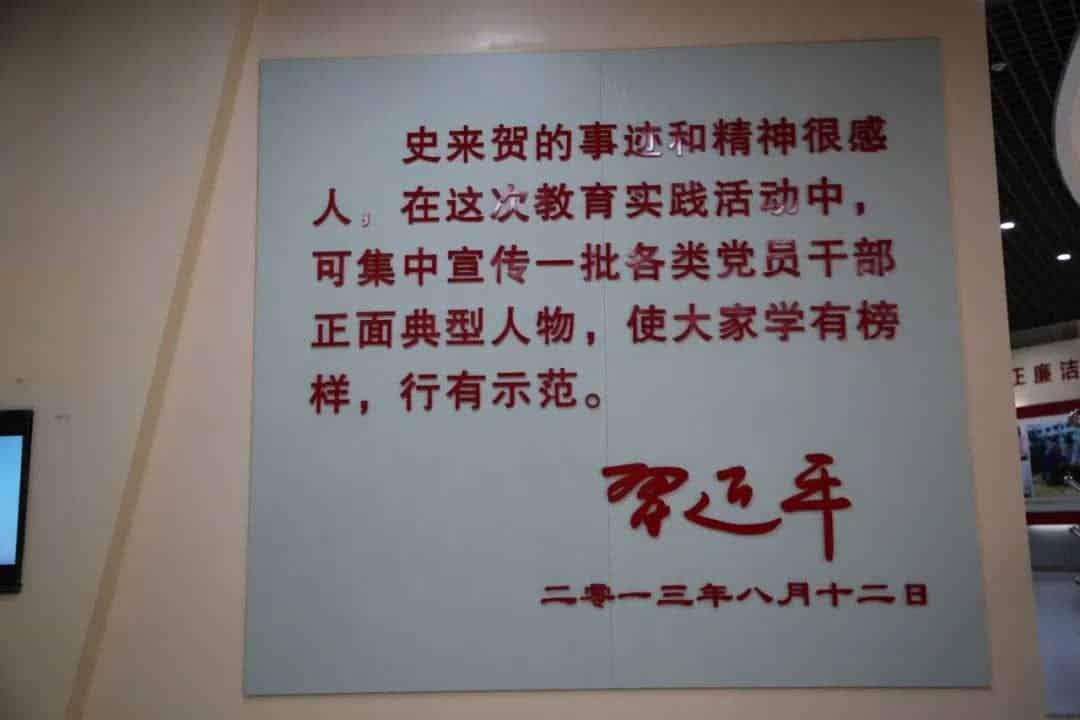 史来贺的事迹和精神很感
人，在这次教育实践活动中，
可集中宣传一批各类党员干部
正面典型人物，使大家学有榜
样，行有示范。
习近平
二零一三年八月十二日
廉洁